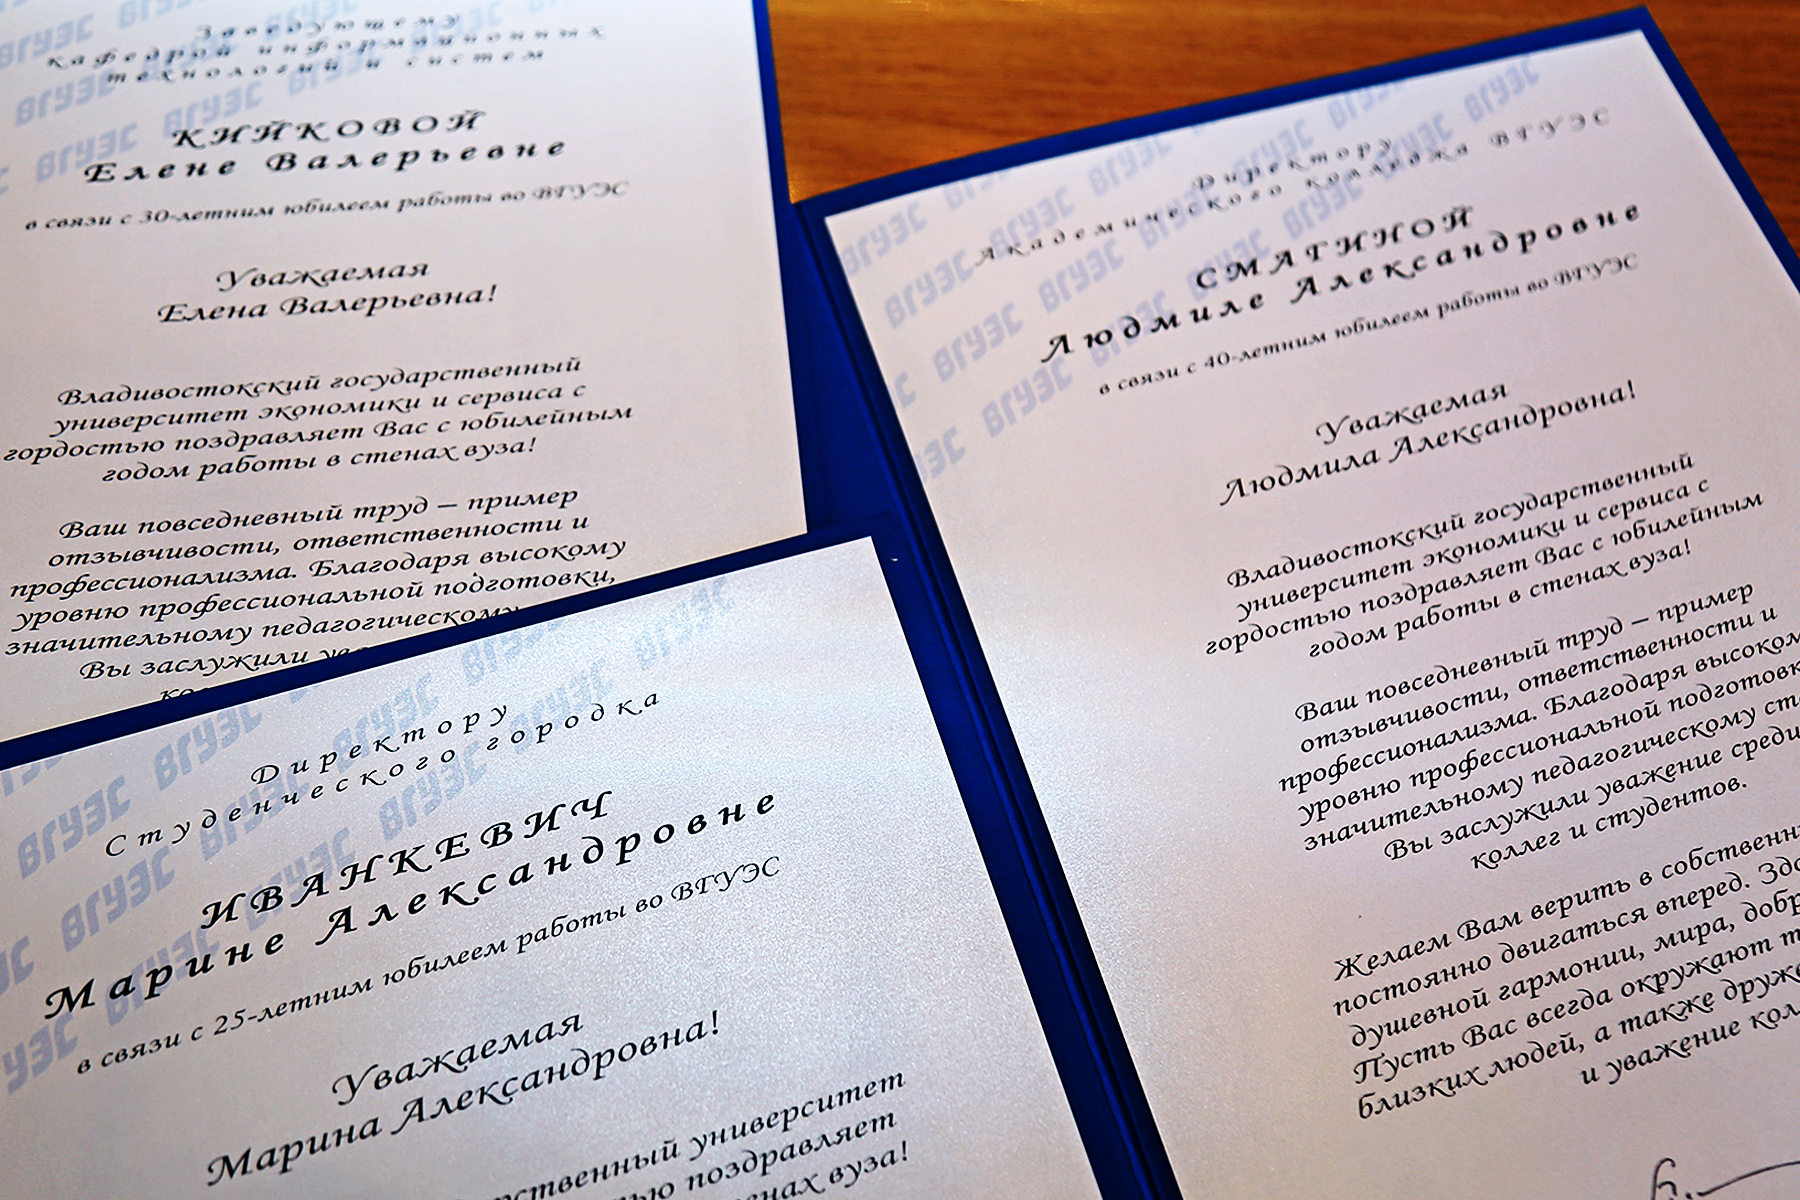 Заведующему
кафедрой информационных
технологий и систем
КИЙКОВОЙ
Елене Валерьевне
в связи с 30-летним юбилеем работы во ВГУЭС
Уважаемая
Елена Валерьевна!
Владивостокский государственный
университет экономики и сервиса с
гордостью поздравляет Вас с юбилейным
годом работы в стенах вуза!
Ваш повседневный труд – пример
отзывчивости, ответственности и
профессионализма. Благодаря высокому
уровню профессиональной подготовки,
значительному педагогическому
Вы заслужили
Директору
Академического колледжа ВГУЭС
СМАГИНОЙ
Людмиле Александровне
в связи с 40-летним юбилеем работы во ВГУЭС
Уважаемая
Людмила Александровна!
Владивостокский государственный
университет экономики и сервиса с
гордостью поздравляет Вас с юбилейным
годом работы в стенах вуза!
Ваш повседневный труд – пример
отзывчивости, ответственности и
профессионализма. Благодаря высоком
уровню профессиональной подготовк
значительному педагогическому ст
Вы заслужили уважение среди
коллег и студентов.
Желаем Вам верить в собственн
постоянно двигаться вперед. Здо
душевной гармонии, мира, добр
Пусть Вас всегда окружают т
близких людей, а также друже
и уважение кол
Директору
Студенческого городка
ИВАНКЕВИЧ
Марине Александровне
в связи с 25-летним юбилеем работы во ВГУЭС
Уважаемая
Марина Александровна!
рственный университет
ью поздравляет
енах вуза!
ВГУЭС